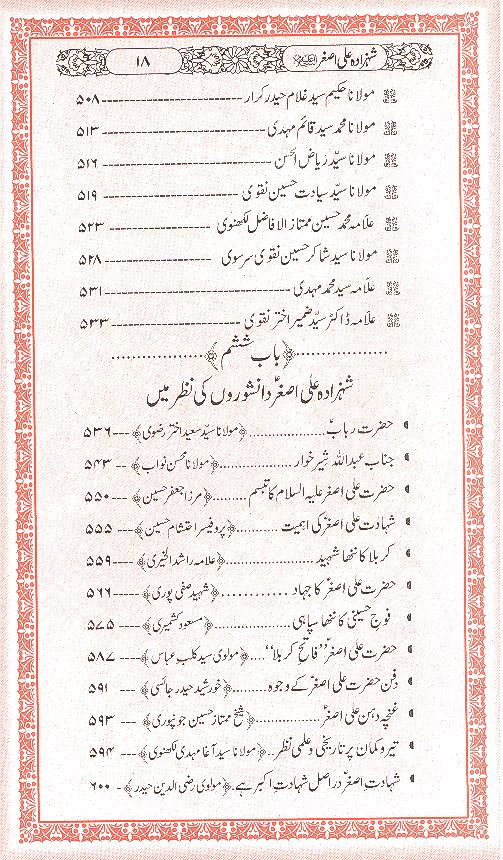 شہزادہ علی اصغرؑ ۱۸
مولانا حکیم سید غلام حیدر کرار ---------------------- ۵۰۸
مولانا محمد سید قائم مہدی ---------------------- ۵۱۳
مولانا سیّد ریاض الحسن ---------------------- ۵۱۶
مولانا سیّد سیادت حسین نقوی ---------------------- ۵۱۹
علّامہ محمد حسین ممتاز الافاضل لکھنوی ---------------------- ۵۲۳
مولانا سید شاکر حسین نقوی سرسوی ---------------------- ۵۲۸
علّامہ سید محمد مہدی ---------------------- ۵۳۱
علّامہ ڈاکٹر سیّد ضمیر اختر نقوی ---------------------- ۵۳۳
..................﴿باب ششم﴾..................
شہزادہ علی اصغرؑ دانشوروں کی نظر میں
حضرت ربابؑ ..................﴿مولانا سیّد سعید اختر رضوی﴾---۵۳۶
جناب عبداللہ شیر خوار ..................﴿مولانا محسن نواب﴾ -- ۵۴۳
حضرت علی اصغر علیہ السلام کا تبسم ........﴿مرزا جعفر حسین﴾ --- ۵۵۰
شہادت علی اصغرؑ کی اہمیت ..........﴿پروفیسر احتشام حسین﴾--- ۵۵۵
کربلا کا ننھا شہید ..................﴿علامہ راشد الخیری﴾---- ۵۵۹
حضرت علی اصغرؑ کا جہاد ............﴿شہید صفی پوری﴾---- ۵۶۶
فوجِ حسینی کا ننھا سپاہی ..................﴿مسعود کشمیری﴾---- ۵۷۵
حضرت علی اصغرؑ ’’فاتح کربلا‘‘ ....﴿مولوی سید کلب عباس﴾---- ۵۸۷
دفن حضرت علی اصغرؑ کے وجوہ ........﴿خورشید حیدر جائسی﴾ --- ۵۹۱
غنچہ دہن علی اصغرؑ ..................﴿شیخ ممتاز حسین جونپوری﴾ --- ۵۹۳
تیر و کمان پر تاریخی و علمی نظر ..﴿مولانا سید آغا مہدی لکھنوی﴾---- ۵۹۴
شہادتِ اصغرؑ دراصل شہادتِ اکبر ہے .﴿مولوی رضی الدین حیدر﴾- ۶۰۰